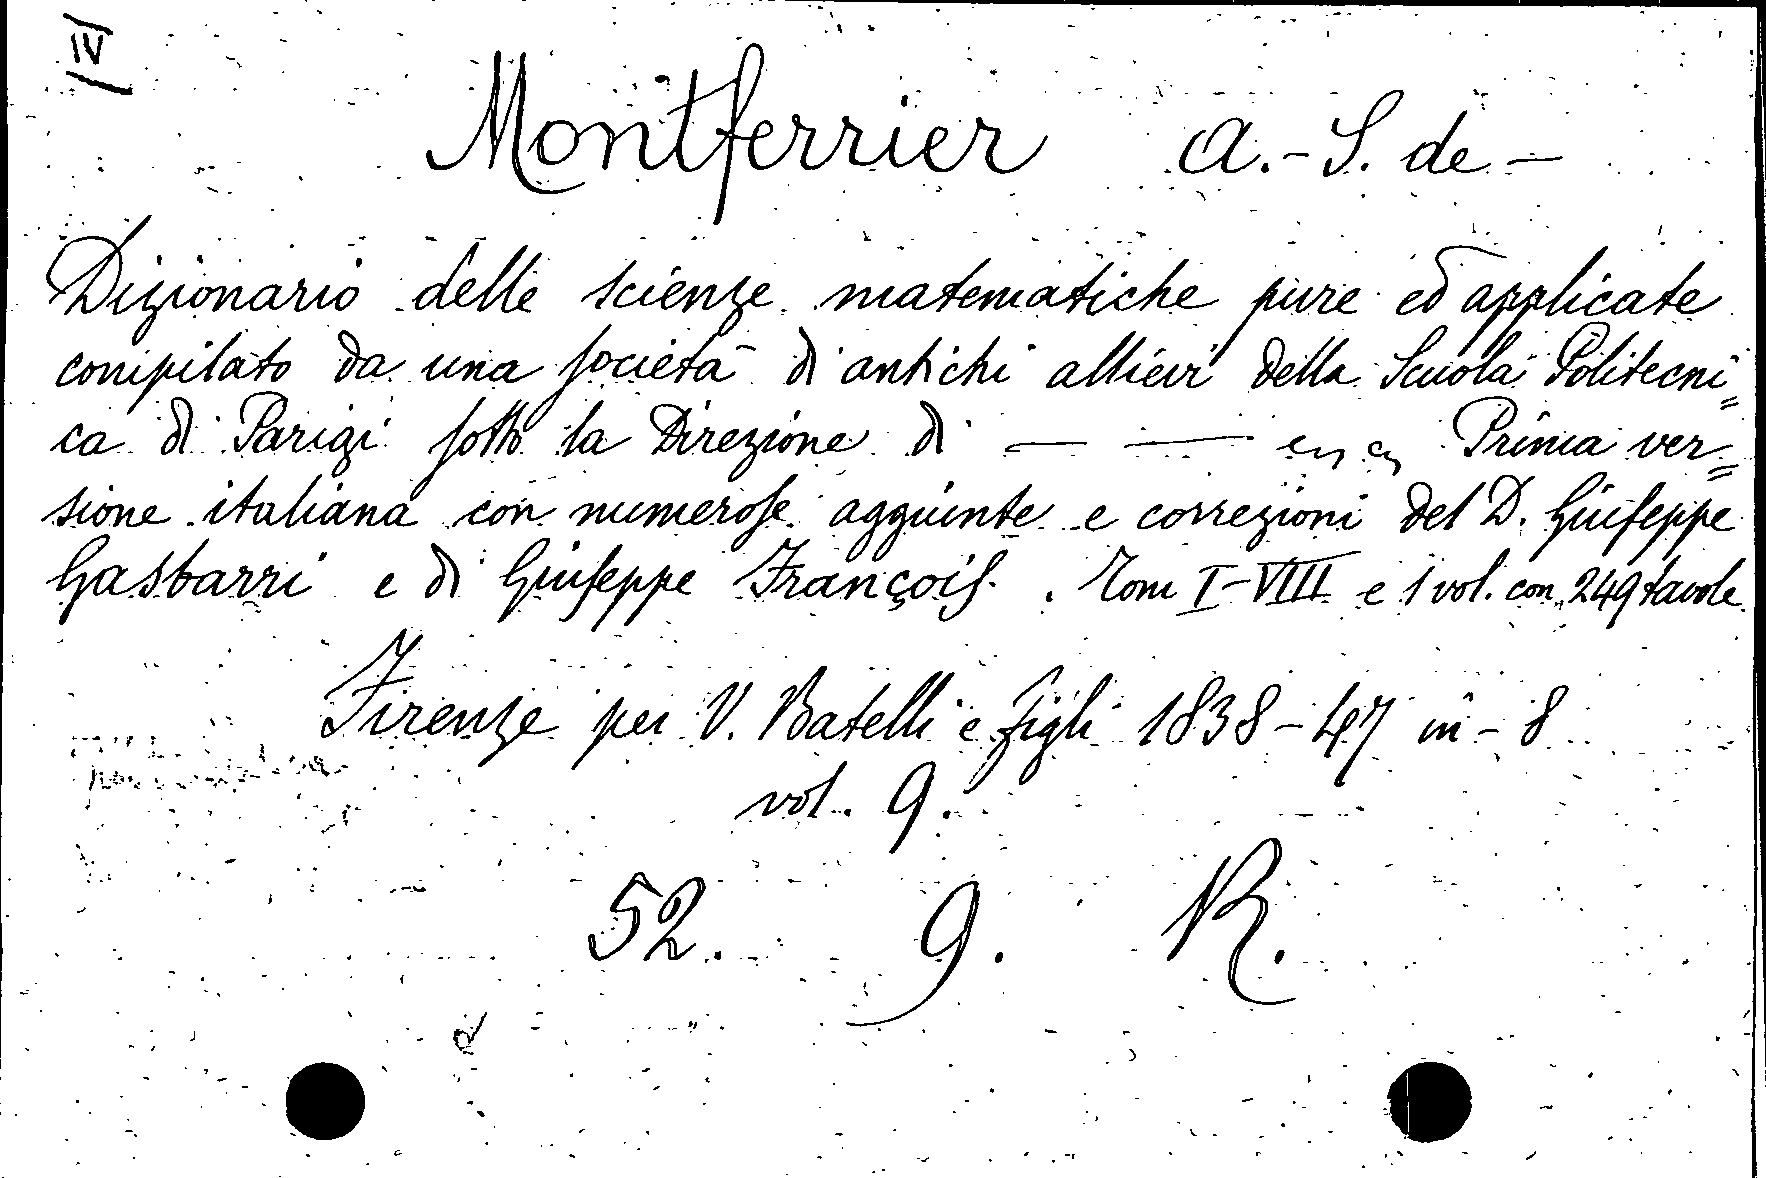 IV
Montferrier A.-S. de —
Dizionario delle scienze matematiche pure ed applicate
compilato da una società di antichi allievi della Scuola Politecni=
ca di Parigi sotto la Direzione di — — Prima ver=
sione italiana con numerose aggiunte e correzioni del D. Giuseppe
Gasbarri e di Giuseppe François. Tom I-VIII e 1 vol. con 249 tavole
Firenze per V. Batelli e figli 1838-47 in-8
vol. 9.
52. 9. R.